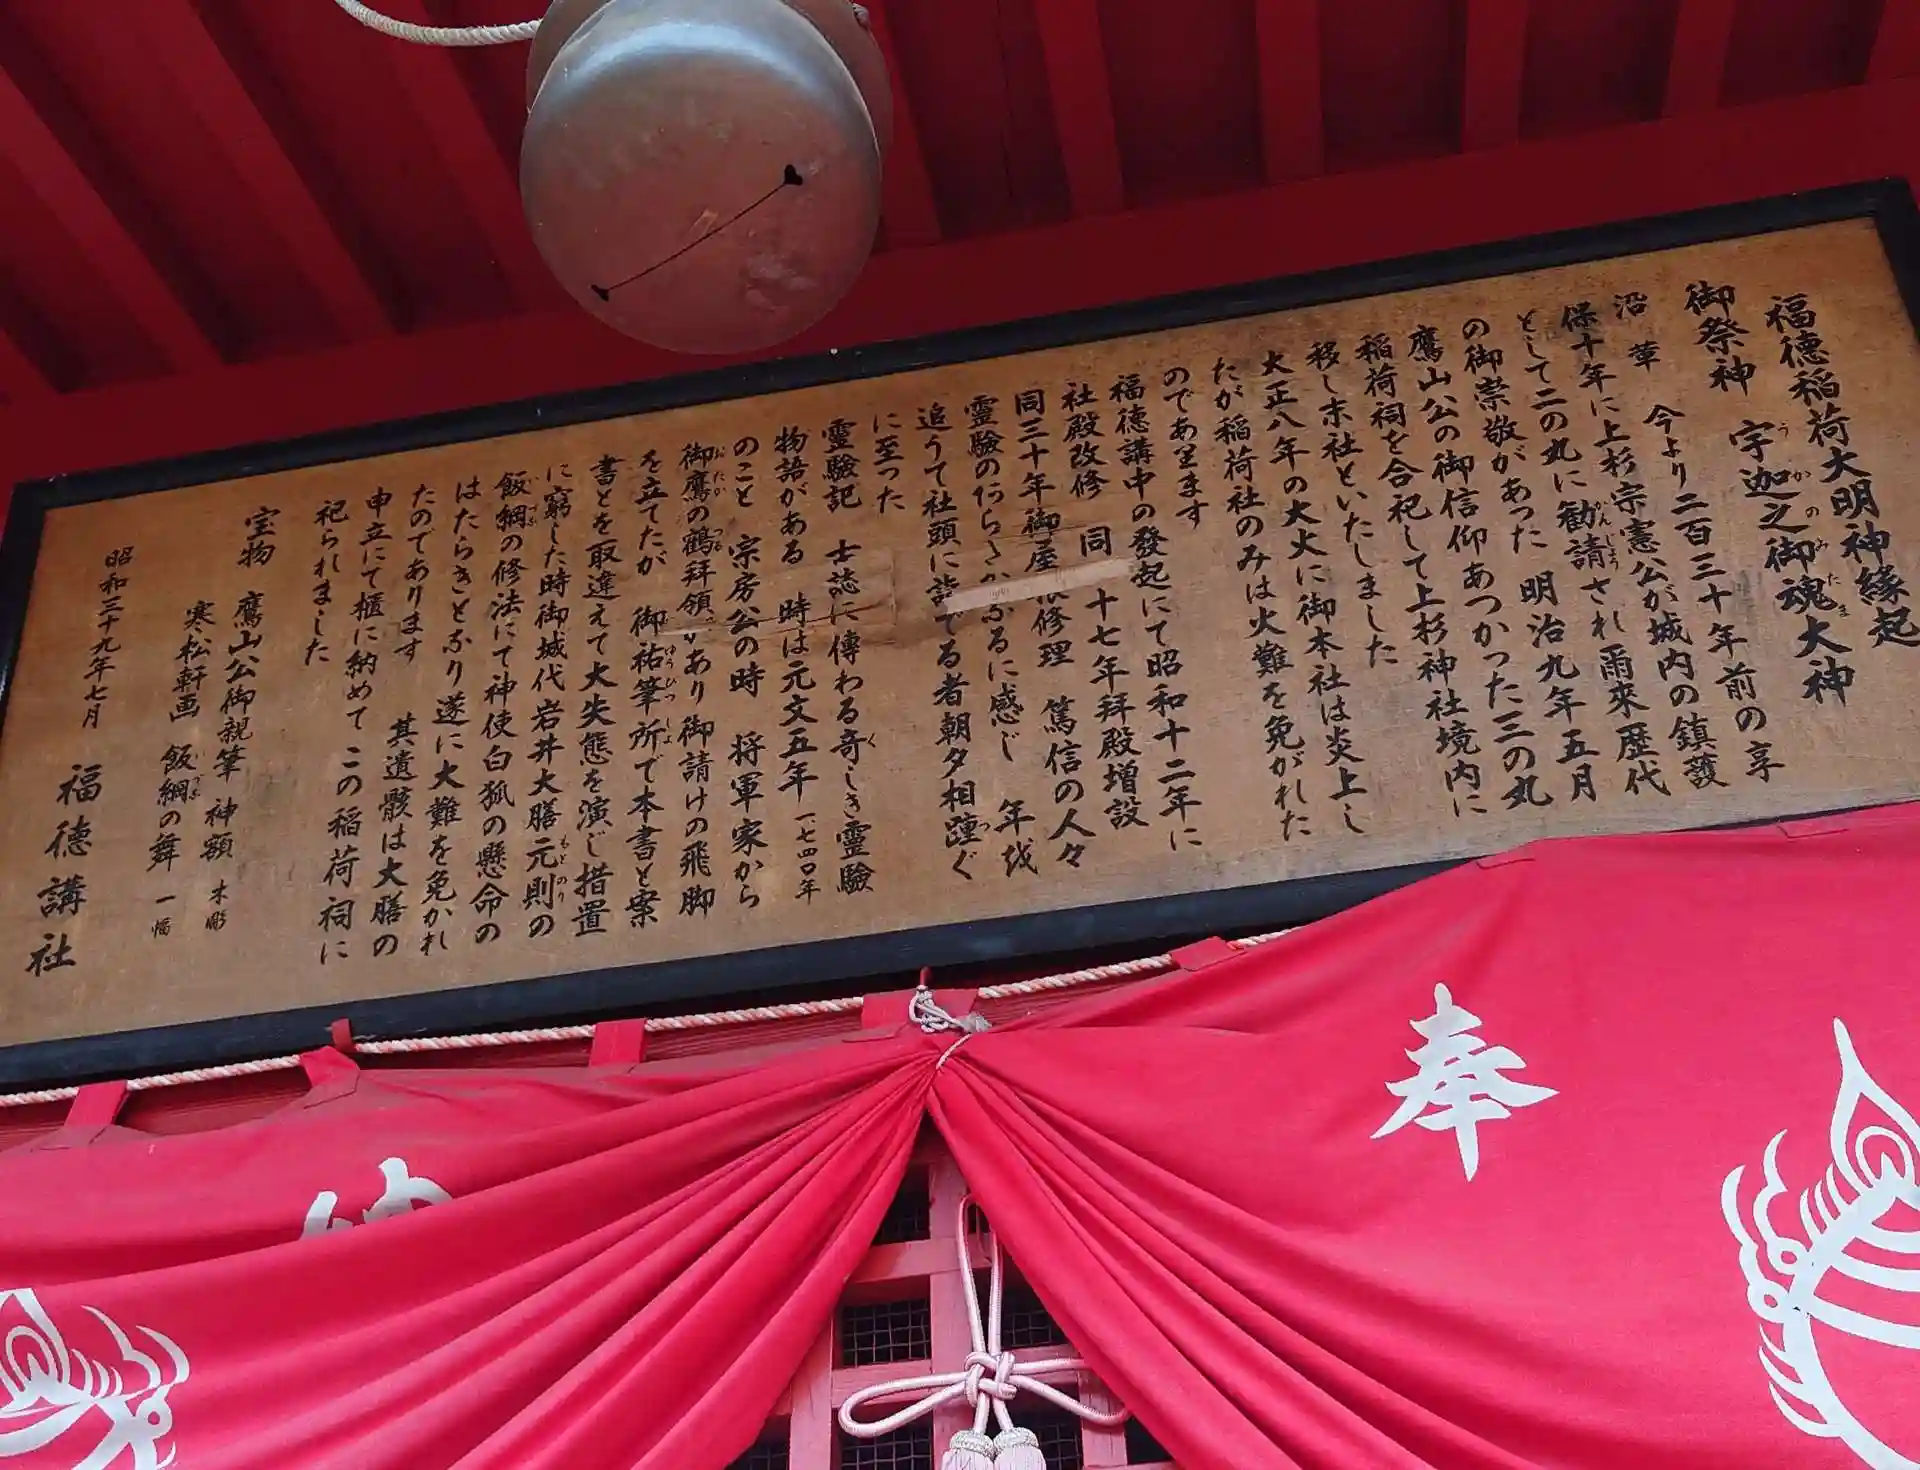 福徳稲荷大明神縁起
御祭神 宇迦之御魂大神
うかのみたま
沿革 今より二百三十年前の享
保十年に上杉宗憲公が城内の鎮護
として二の丸に勧請され爾來歴代
かんじょう
の御崇敬があった 明治九年五月
鷹山公の御信仰あつかった三の丸
稲荷祠を合祀して上杉神社境内に
移し末社といたしました
大正八年の大火に御本社は炎上し
たが稲荷社のみは火難を免がれた
のであります
福徳講中の發起にて昭和十二年に
社殿改修 同十七年拜殿増設
同三十年御屋根修理 篤信の人々
霊驗のあらたかなるに感じ 年を
追うて社頭に詣でる者朝夕相踵ぐ
つ
に至った
霊驗記 士誌に傳わる奇しき霊驗
く
物語がある 時は元文五年 一、七四〇年
のこと 宗房公の時 将軍家から
御鷹の鶴拜領があり御請けの飛脚
おたか つる
を立てたが 御祐筆所で本書と案
ゆうひつしよ
書とを取違えて大失態を演じ措置
に窮した時御城代岩井大膳元則の
もとのり
飯綱の修法にて神使白狐の懸命の
はたらきとなり遂に大難を免かれ
たのであります 其遺骸は大膳の
申立にて櫃に納めて この稲荷祠に
祀られました
宝物 鷹山公御親筆 神額 木彫
寒松軒画 飯綱の舞 一幅
昭和三十九年七月 福徳講社
奉